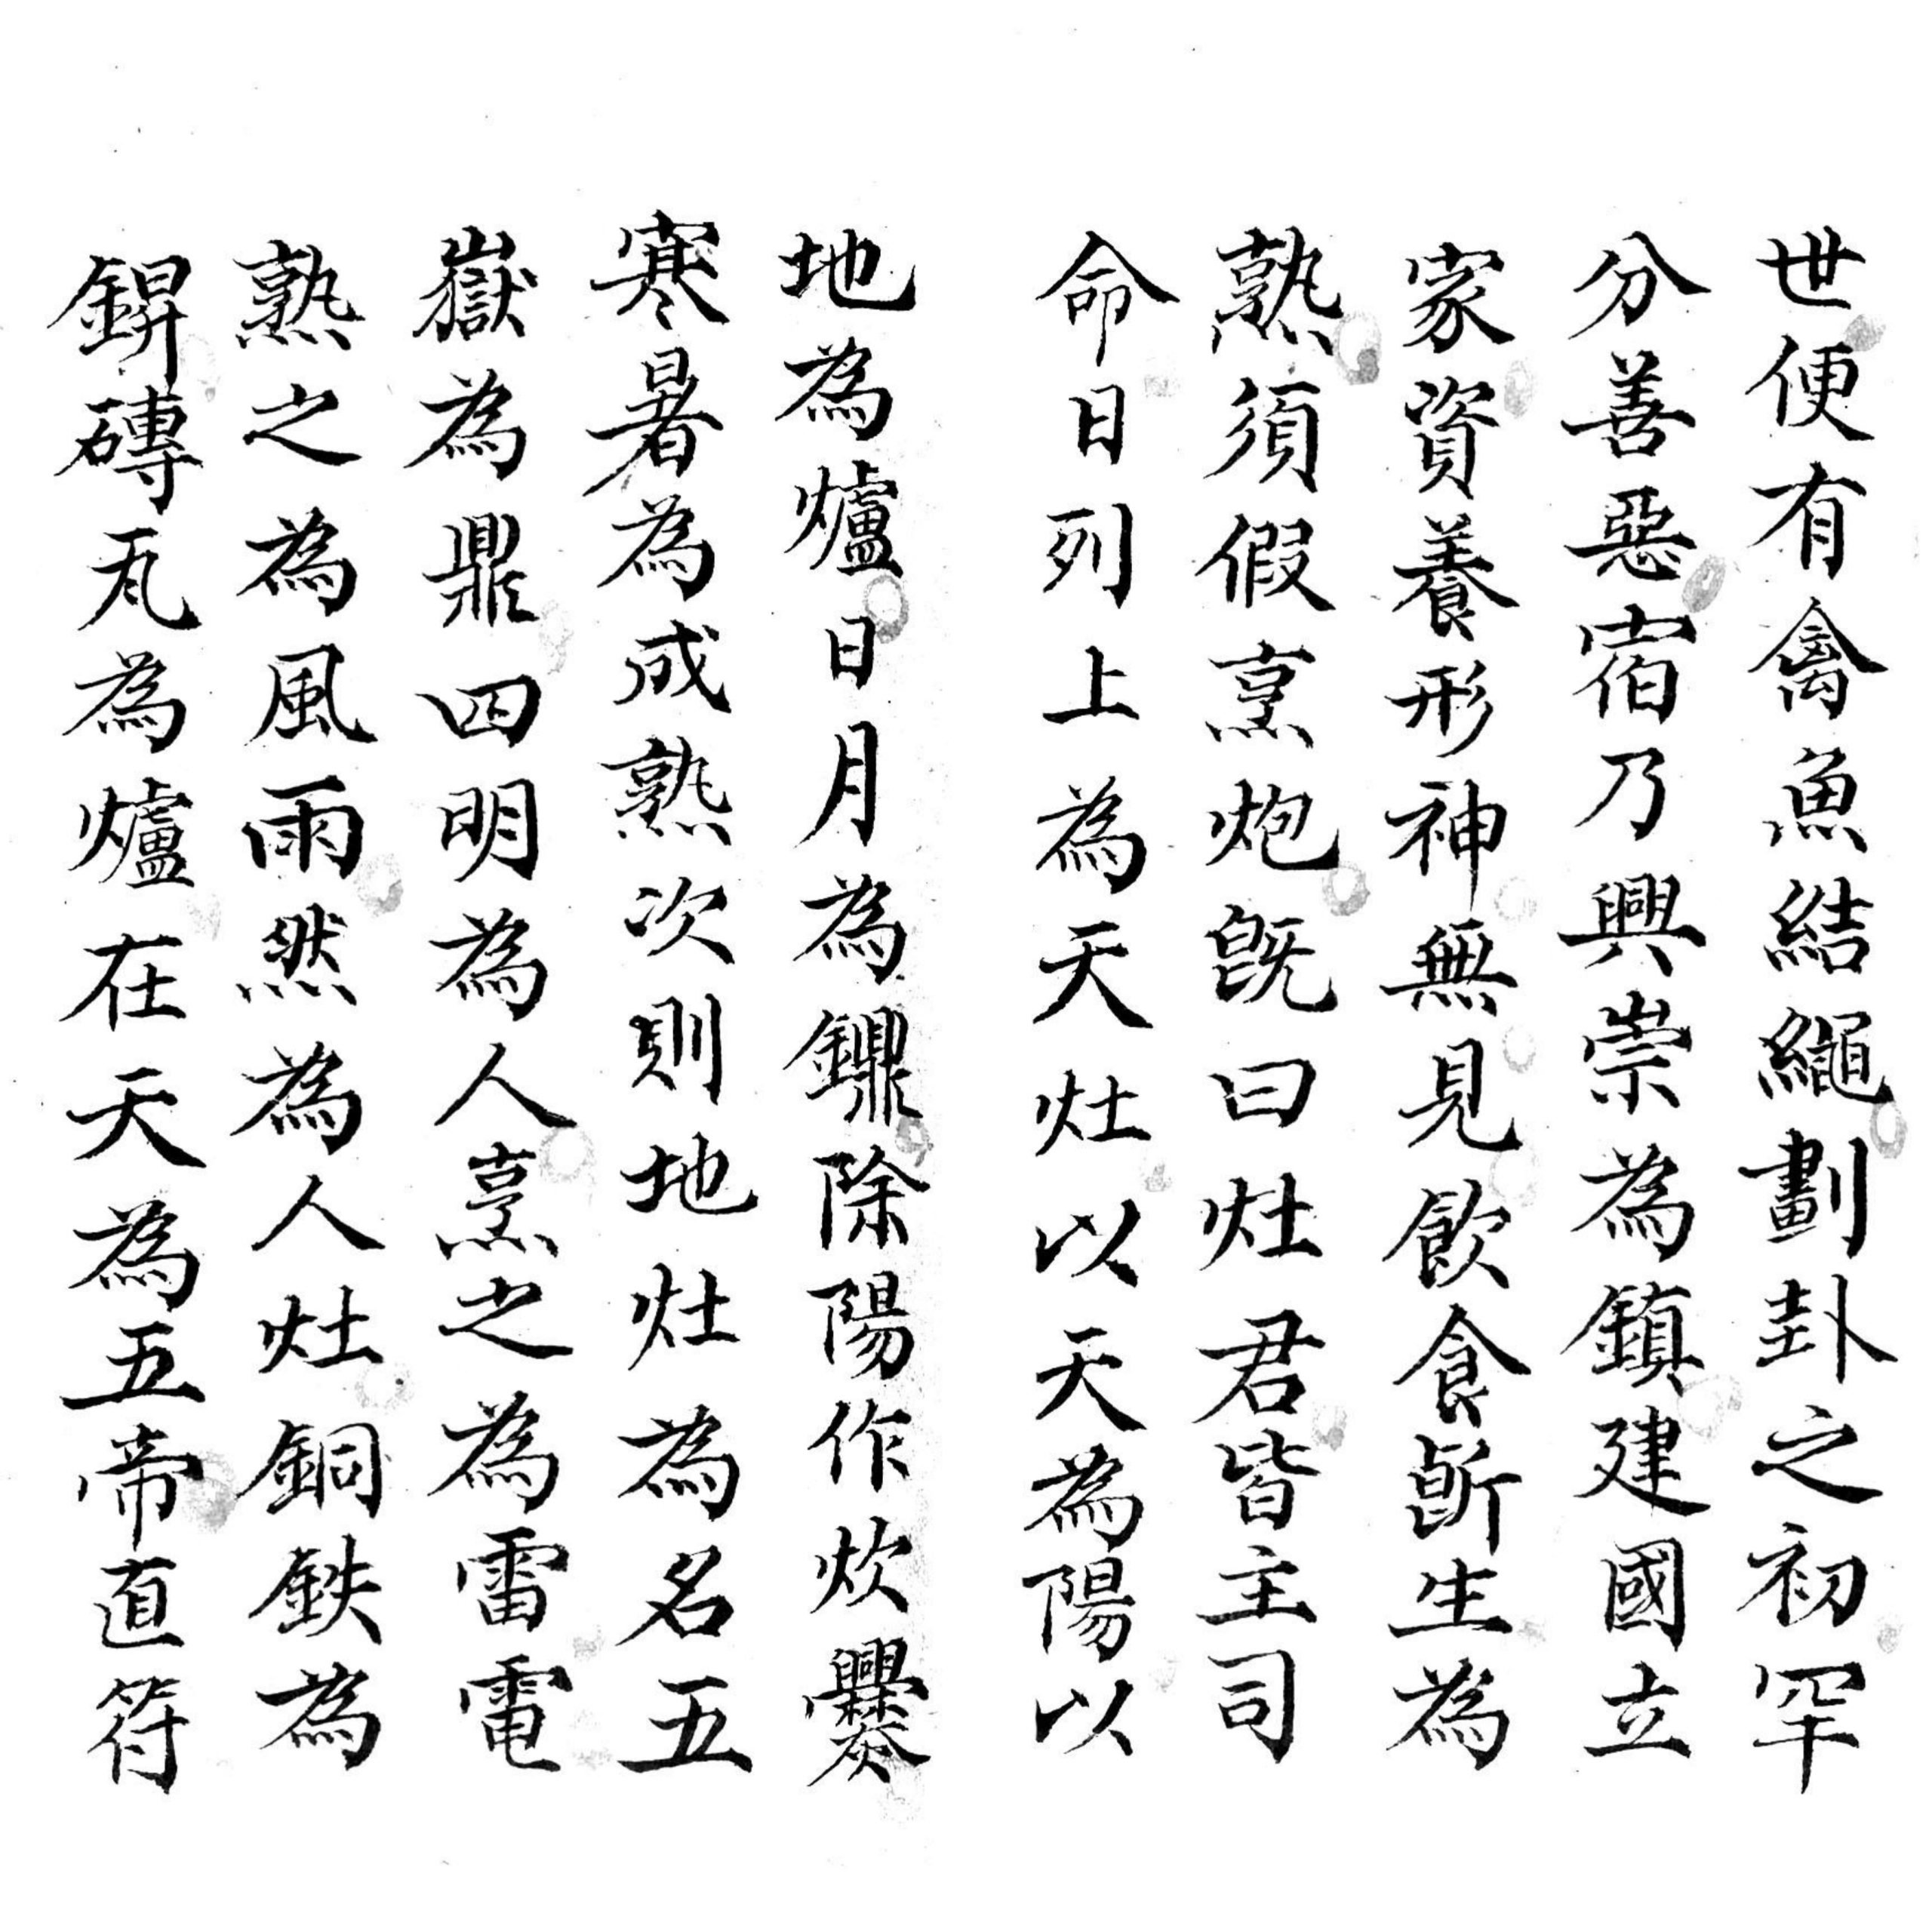 世便有禽魚結繩劃卦之初罕
分善惡宿乃興崇為鎮建國立
家資養形神無見飲食斯生為
熟須假烹炮既曰灶君皆主司
命日列上為天灶以天為陽以
地為爐日月為鐤除陽作炊爨
寒暑為成熟次則地灶為名五
嶽為鼎四明為人烹之為雷電
熟之為風雨然為人灶銅鉄為
鍋磚瓦為爐在天為五帝直符